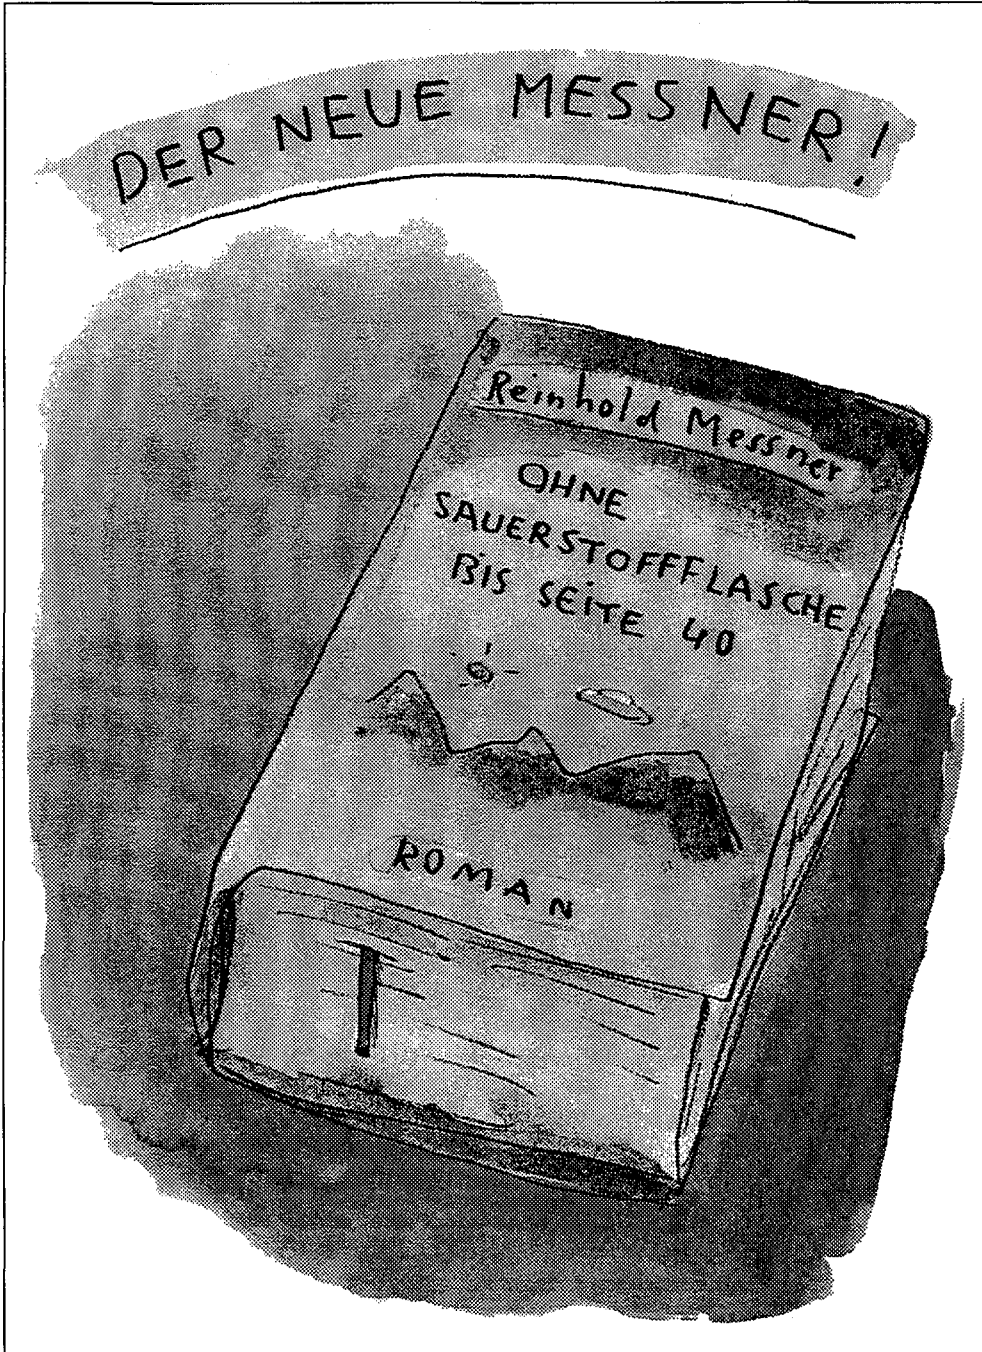 DER NEUE MESSNER!
Reinhold Messner
OHNE
SAUERSTOFFFLASCHE
BIS SEITE 40
ROMAN